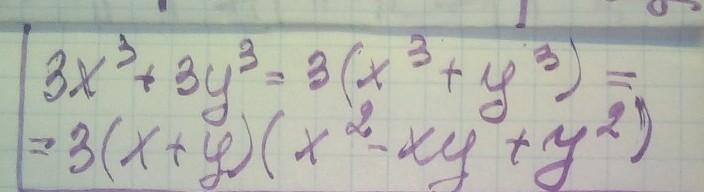 3x³ + 3y³ = 3(x³ + y³) =
= 3(x + y)(x² - xy + y²)